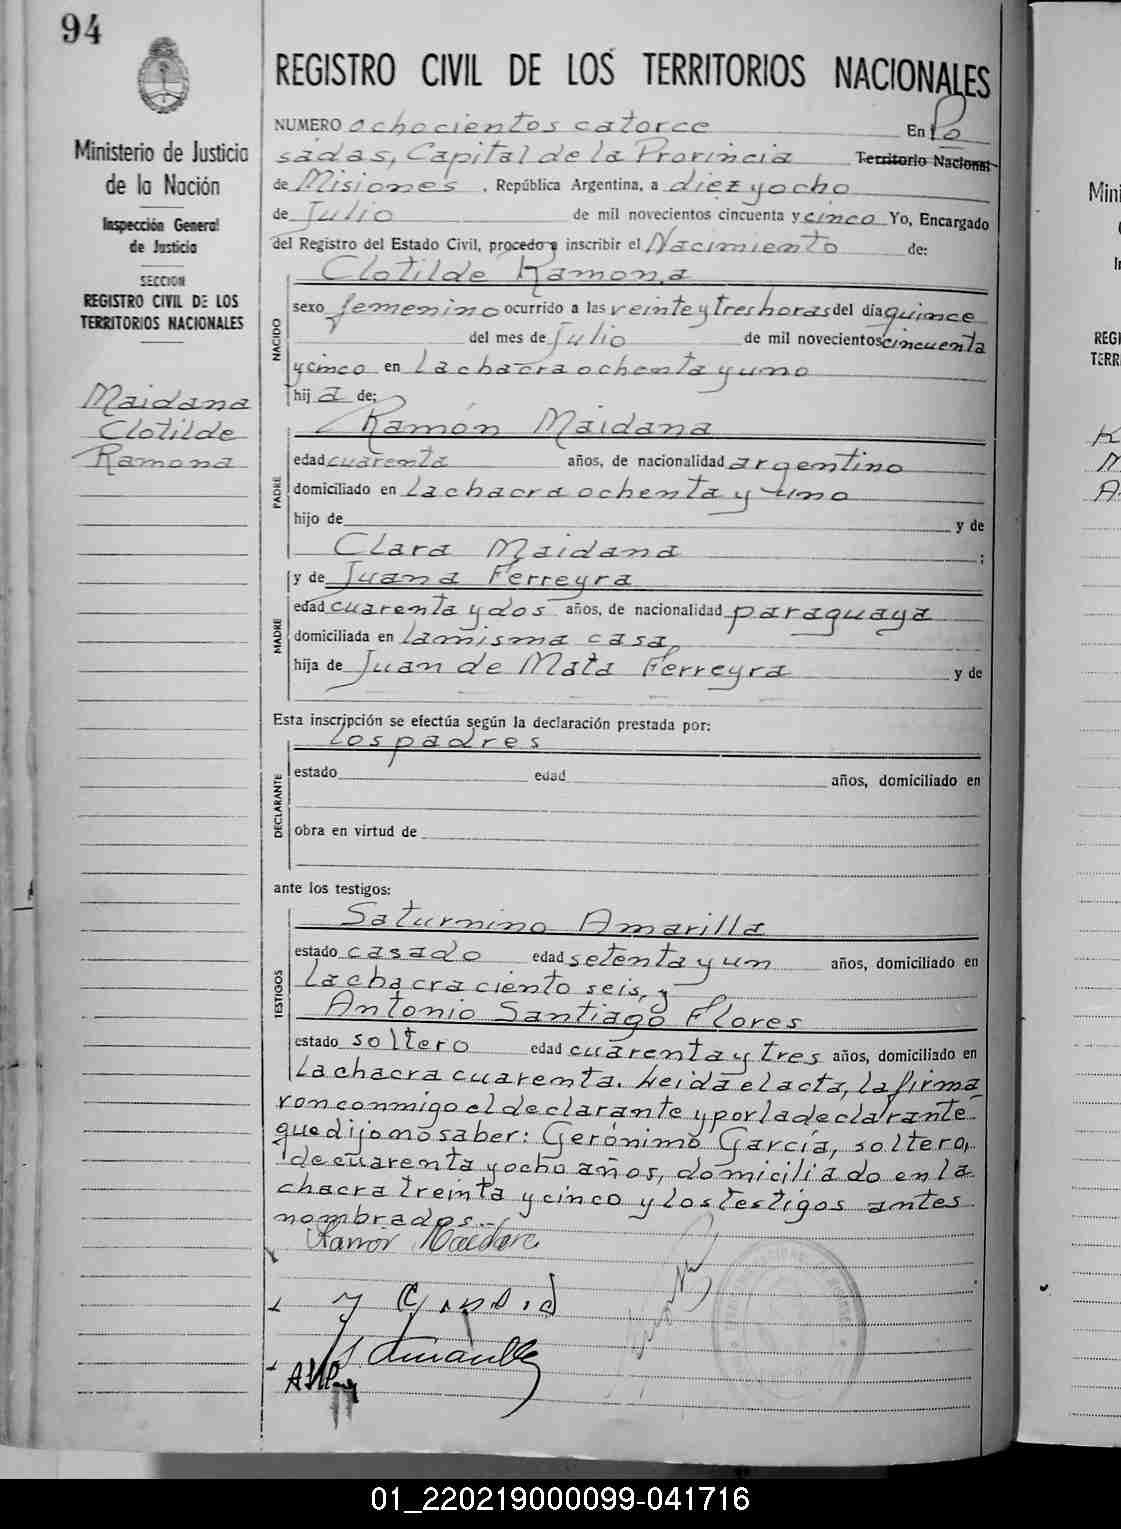 94
Ministerio de Justicia
de la Nación
Inspección General
de Justicia
SECCION
REGISTRO CIVIL DE LOS
TERRITORIOS NACIONALES
Maidana
Clotilde
Ramona
REGISTRO CIVIL DE LOS TERRITORIOS NACIONALES
NUMERO ochocientos catorce En Po
sadas, Capital de la Provincia Territorio Nacional
de Misiones, República Argentina, a diez y ocho
de Julio de mil novecientos cincuenta y cinco Yo, Encargado
del Registro del Estado Civil, procedo a inscribir el Nacimiento de:
NACIDO
Clotilde Ramona
sexo femenino ocurrido a las veinte y tres horas del día quince
del mes de Julio de mil novecientos cincuenta
y cinco en La chacra ochenta y uno
hij a de:
PADRE
Ramón Maidana
edad cuarenta años, de nacionalidad argentino
domiciliado en La chacra ochenta y uno
hijo de y de
Clara Maidana ;
y de Juana Ferreyra
MADRE
edad cuarenta y dos años, de nacionalidad paraguaya
domiciliada en la misma casa
hija de Juan de Mata Ferreyra y de
Esta inscripción se efectúa según la declaración prestada por:
DECLARANTE
los padres
estado edad años, domiciliado en
obra en virtud de
ante los testigos:
TESTIGOS
Saturnino Amarilla
estado casado edad setenta y un años, domiciliado en
La chacra ciento seis, y
Antonio Santiago Flores
estado soltero edad cuarenta y tres años, domiciliado en
La chacra cuarenta. Leída el acta, la firma
ron conmigo el declarante y por la declarante
que dijo no saber: Gerónimo García, soltero,
de cuarenta y ocho años, domiciliado en la
chacra treinta y cinco y los testigos antes
nombrados.-
Ramón Maidana
01_220219000099-041716